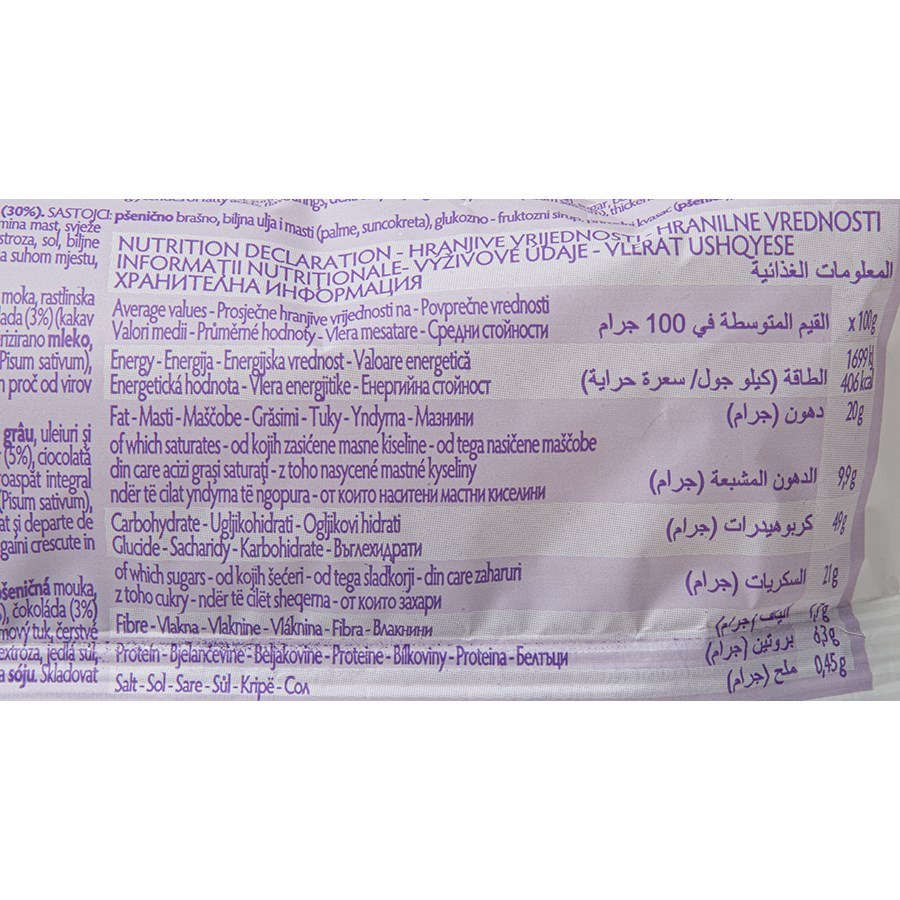 (30%). SASTOJCI: pšenično brašno, biljna ulja i masti (palme, suncokreta), glukozno - fruktozni sirup,
mina mast, svježe
stroza, sol, biljne
a suhom mjestu,
moka, rastlinska
lada (3%) (kakav
erizirano mleko,
Pisum sativum),
n proč od virov
grâu, uleiuri și
(5%), ciocolată
roaspăt integral
(Pisum sativum),
at și departe de
gaini crescute in
pšeničná mouka,
), čokoláda (3%)
mový tuk, čerstvé
extróza, jedlá sůl,
a sóju. Skladovat
NUTRITION DECLARATION - HRANJIVE VRIJEDNOSTI - HRANILNE VREDNOSTI
INFORMAȚII NUTRITIONALE - VÝŽIVOVÉ ÚDAJE - VLERAT USHQYESE
ХРАНИТЕЛНА ИНФОРМАЦИЯ المعلومات الغذائية
Average values - Prosječne hranjive vrijednosti na - Povprečne vrednosti
Valori medii - Průměrné hodnoty - Vlera mesatare - Средни стойности القيم المتوسطة في 100 جرام x 100g
Energy - Energija - Energijska vrednost - Valoare energetică 1699 kJ
Energetická hodnota - Vlera energjitike - Енергийна стойност الطاقة (كيلو جول/ سعرة حراية) 406 kcal
Fat - Masti - Maščobe - Grăsimi - Tuky - Yndyrna - Мазнини دهون (جرام) 20g
of which saturates - od kojih zasićene masne kiseline - od tega nasičene maščobe
din care acizi grași saturați - z toho nasycené mastné kyseliny الدهون المشبعة (جرام) 9,9g
ndër të cilat yndyrna të ngopura - от които наситени мастни киселини
Carbohydrate - Ugljikohidrati - Ogljikovi hidrati كربوهيدرات (جرام) 49g
Glucide - Sacharidy - Karbohidrate - Въглехидрати
of which sugars - od kojih šećeri - od tega sladkorji - din care zaharuri السكريات (جرام) 21g
z toho cukry - ndër të cilët sheqerna - от които захари
Fibre - Vlakna - Vlaknine - Vláknina - Fibra - Влакнини
Protein - Bjelančevine - Beljakovine - Proteine - Bílkoviny - Proteina - Белтъци بروتين (جرام) 6,3g
Salt - Sol - Sare - Sůl - Kripë - Сол ملح (جرام) 0,45g